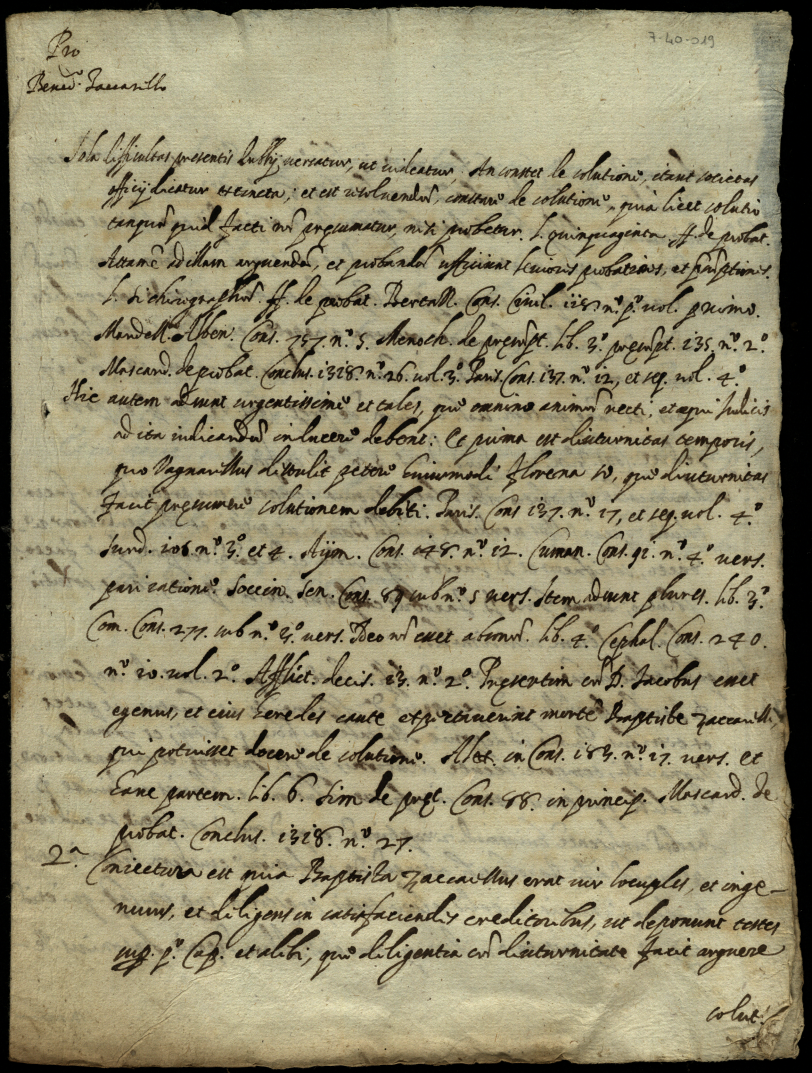 7-40-019
Pro
Bened.º Zaccarillo
Sola difficultas presentis dubij versatur, ut videatur, An constet de solutione, itaut societas
officij dicatur extincta; et est resolvendū, constare de solutione, quia licet solutio
tanquā quid facti nō presumatur, nisi probetur. l. quinquaginta ff. de probat.
Attamē ad illam arguendā, et probandā sufficiunt leviores probationes, et presūptiones.
l. si chirographū. ff. de probat. Bertall. Cons. Civil. 118 nº pº vol. primo.
Mandell. Alben. Cons. 757. nº 5. Menoch. de presūpt. lib. 3º presūpt. 135. nº 2º
Mascard. de probat. Conclus. 1318. nº 26. vol. 3º Paris. Cons. 137. nº 12, et seq. vol. 4º
Hic autem adsunt urgentissime et tales, que omnino animū recti, et equi Iudicis
ad ita iudicandū inducere debent: Et prima est diuturnitas temporis,
quo Vagnarillus distulit petere huiusmodi florena, que diuturnitas
facit presumere solutionem debiti. Paris. Cons 137. nº 17, et seq. vol. 4º
Surd. 106 nº 3º et 4. Aijm. Cons. 148. nº 12. Cuman. Cons. 91. nº 4º vers.
pari ratione. Soccin. Sen. Cons. 89 sub nº 5 vers. Item adsunt plures. lib. 3º
Cons. 277. sub nº 3º vers. Ideo nō esset absonū. lib. 4º Cephal. Cons. 240.
nº 10. vol. 2º Afflict. decis. 13. nº 2º Presertim cū D. Iacobus esset
egenus, et eius heredes caute expectaverint mortē Baptiste Zaccarilli,
qui potuisset docere de solutione. Alex. in Cons. 183. nº 17. vers. et
hanc partem. lib. 6. Sim de pret. Cons. 88. in princip. Mascard. de
probat. Conclus. 1318. nº 27.
2ª Coniectura est quia Baptista Zaccarillus erat vir locuples, et inge-
nuus, et diligens in satisfaciendis creditoribus, ut deponunt testes
sup. pº Cap. et alibi, que diligentia cū diuturnitate facit arguere
solut.